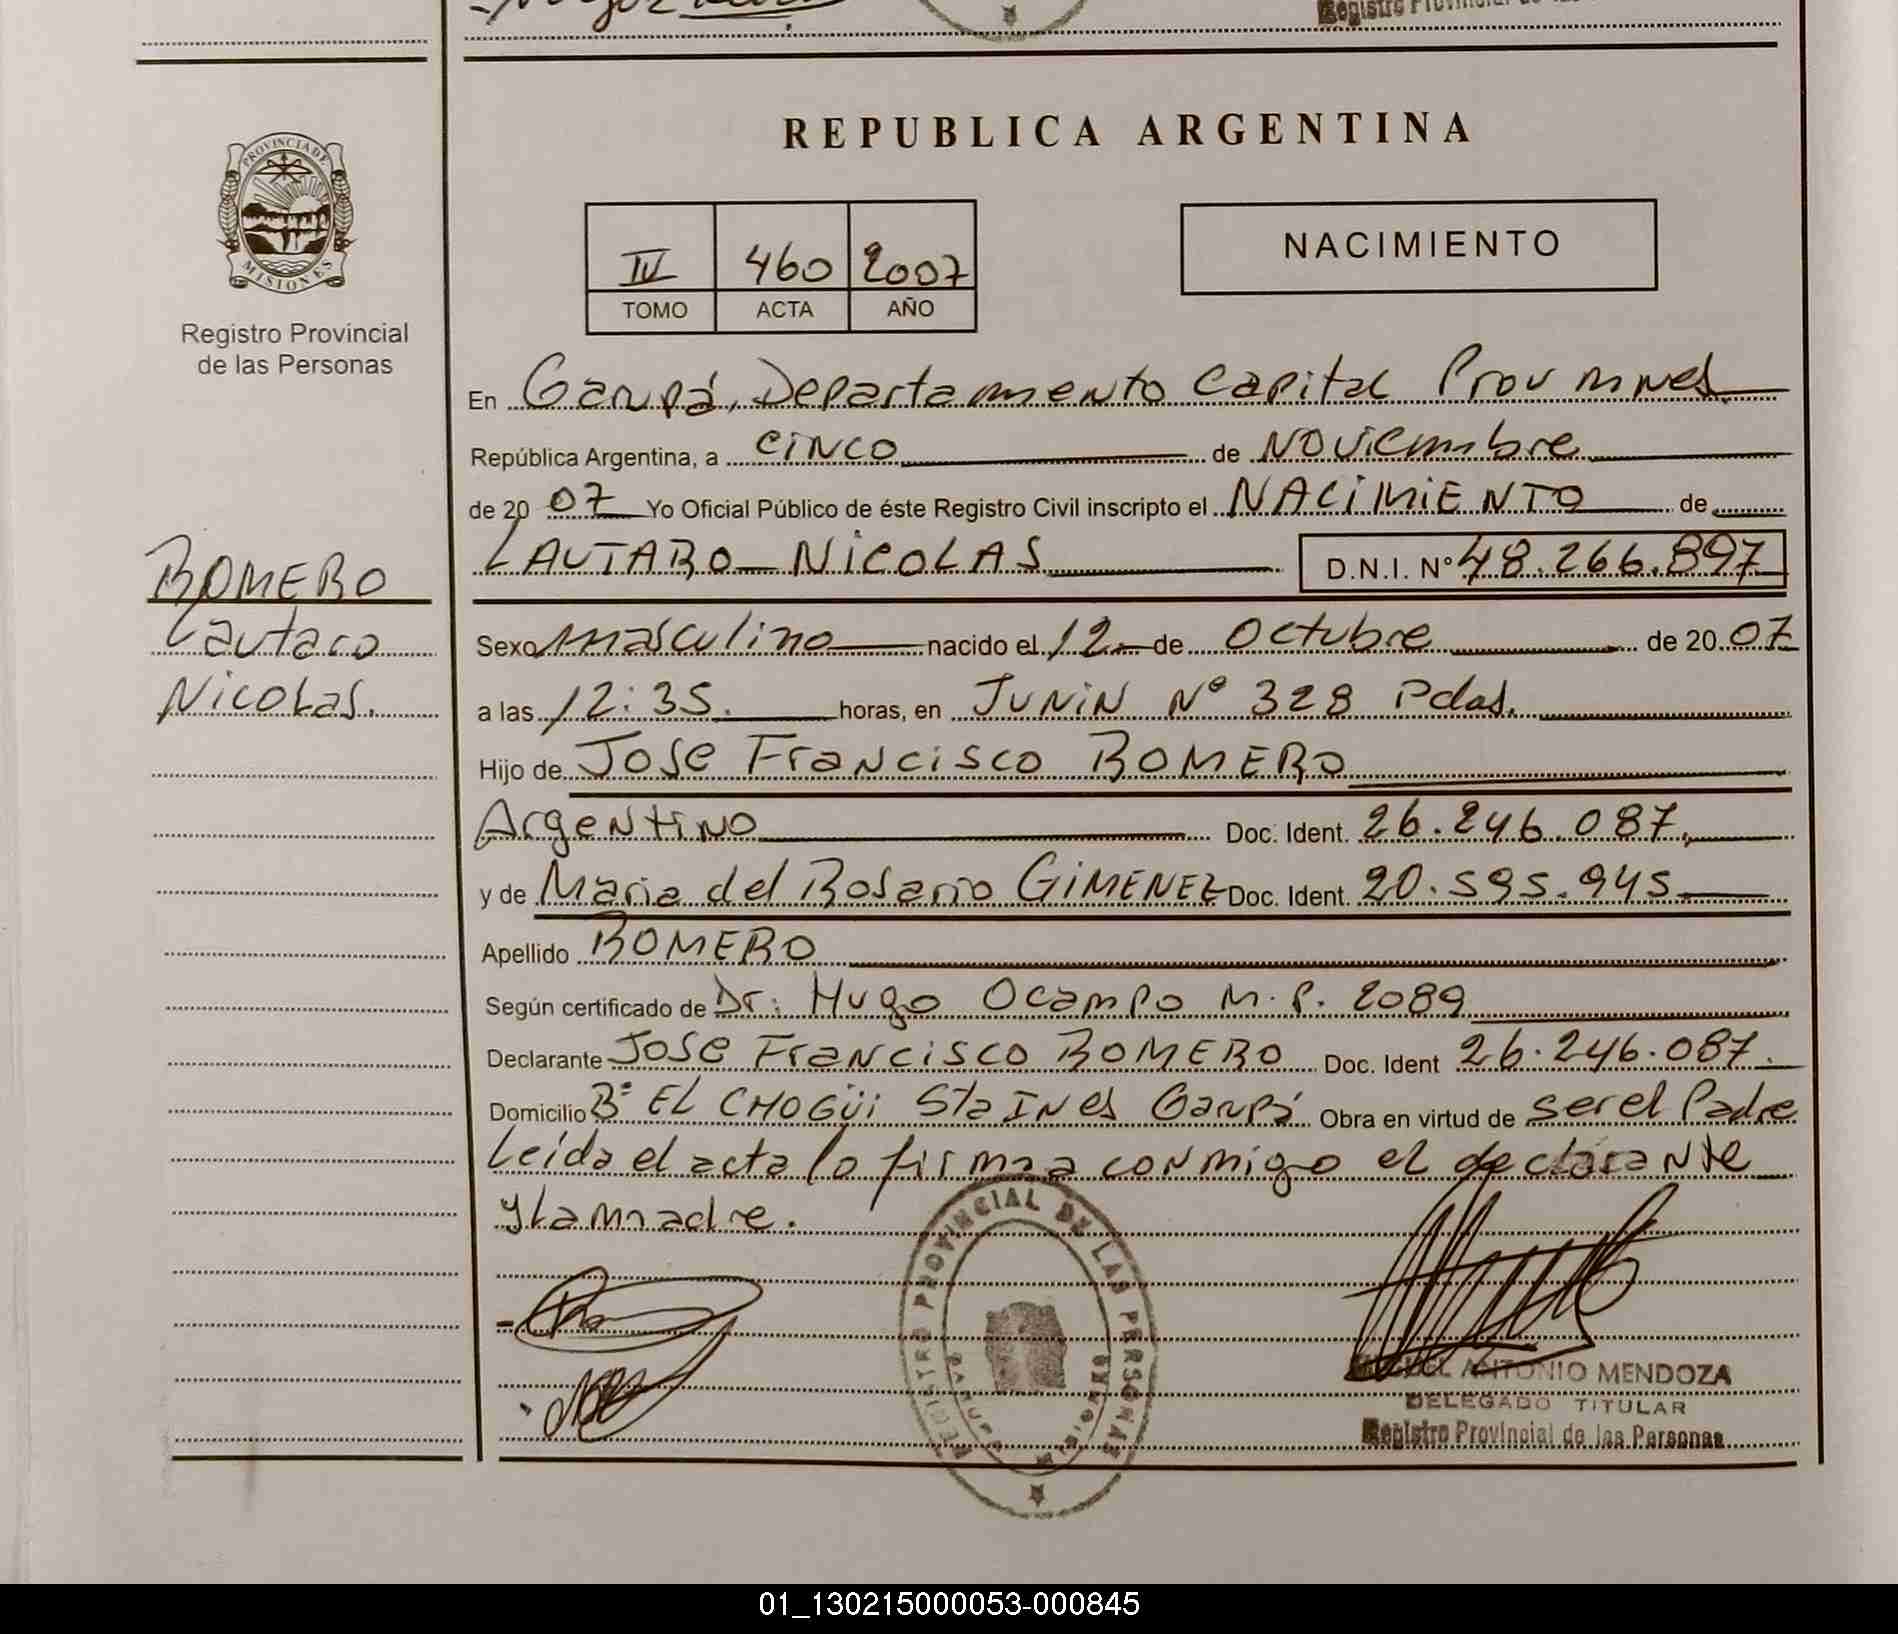 Registro Provincial de las
REPUBLICA ARGENTINA
PROVINCIA DE
MISIONES
Registro Provincial
de las Personas
NACIMIENTO
IV 460 2007
TOMO ACTA AÑO
ROMERO
Lautaro
Nicolas.
En Garupá, Departamento Capital Prov mnes
República Argentina, a CINCO de NOViembre
de 2007 Yo Oficial Público de éste Registro Civil inscripto el NACIMIENTO de
LAUTARO NICOLAS D.N.I. N° 48.266.897
Sexo masculino nacido el 12 de Octubre de 2007
a las 12:35. horas, en JUNIN N° 328 Pdas.
Hijo de Jose Francisco ROMERO
Argentino Doc. Ident. 26.246.087.
y de Maria del Rosario GIMENEZ Doc. Ident. 20.595.945
Apellido ROMERO
Según certificado de Dr: Hugo Ocampo M.P. 2089
Declarante Jose Francisco ROMERO Doc. Ident 26.246.087.
Domicilio B° EL CHOGüi Sta INes Garupá Obra en virtud de ser el Padre
Leída el acta la firma conmigo el declarante
y la madre.
REGISTRO PROVINCIAL DE LAS PERSONAS
MIGUEL ANTONIO MENDOZA
DELEGADO TITULAR
Registro Provincial de las Personas
01_130215000053-000845